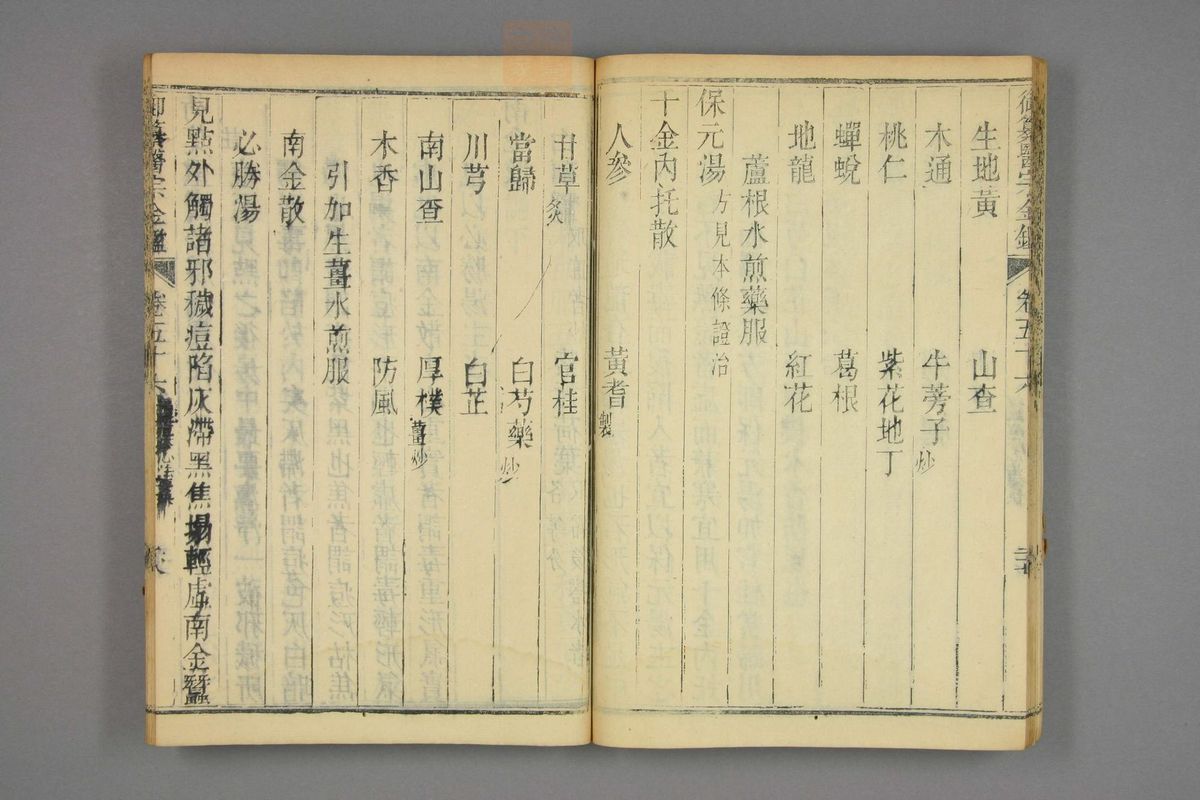 御纂醫宗金鑑 卷五十六
生地黃 山查
木通 牛蒡子炒
桃仁 紫花地丁
蟬蛻 葛根
地龍 紅花
蘆根水煎藥服
保元湯方見本條證治
十金內托散
人參 黃耆製
甘草炙 官桂
當歸 白芍藥炒
川芎 白芷
南山查 厚樸薑炒
木香 防風
引加生薑水煎服
南金散
必勝湯
見點外觸諸邪穢痘陷灰滯黑焦摥輕虛南金蠶
御纂醫宗金鑑 卷五十六